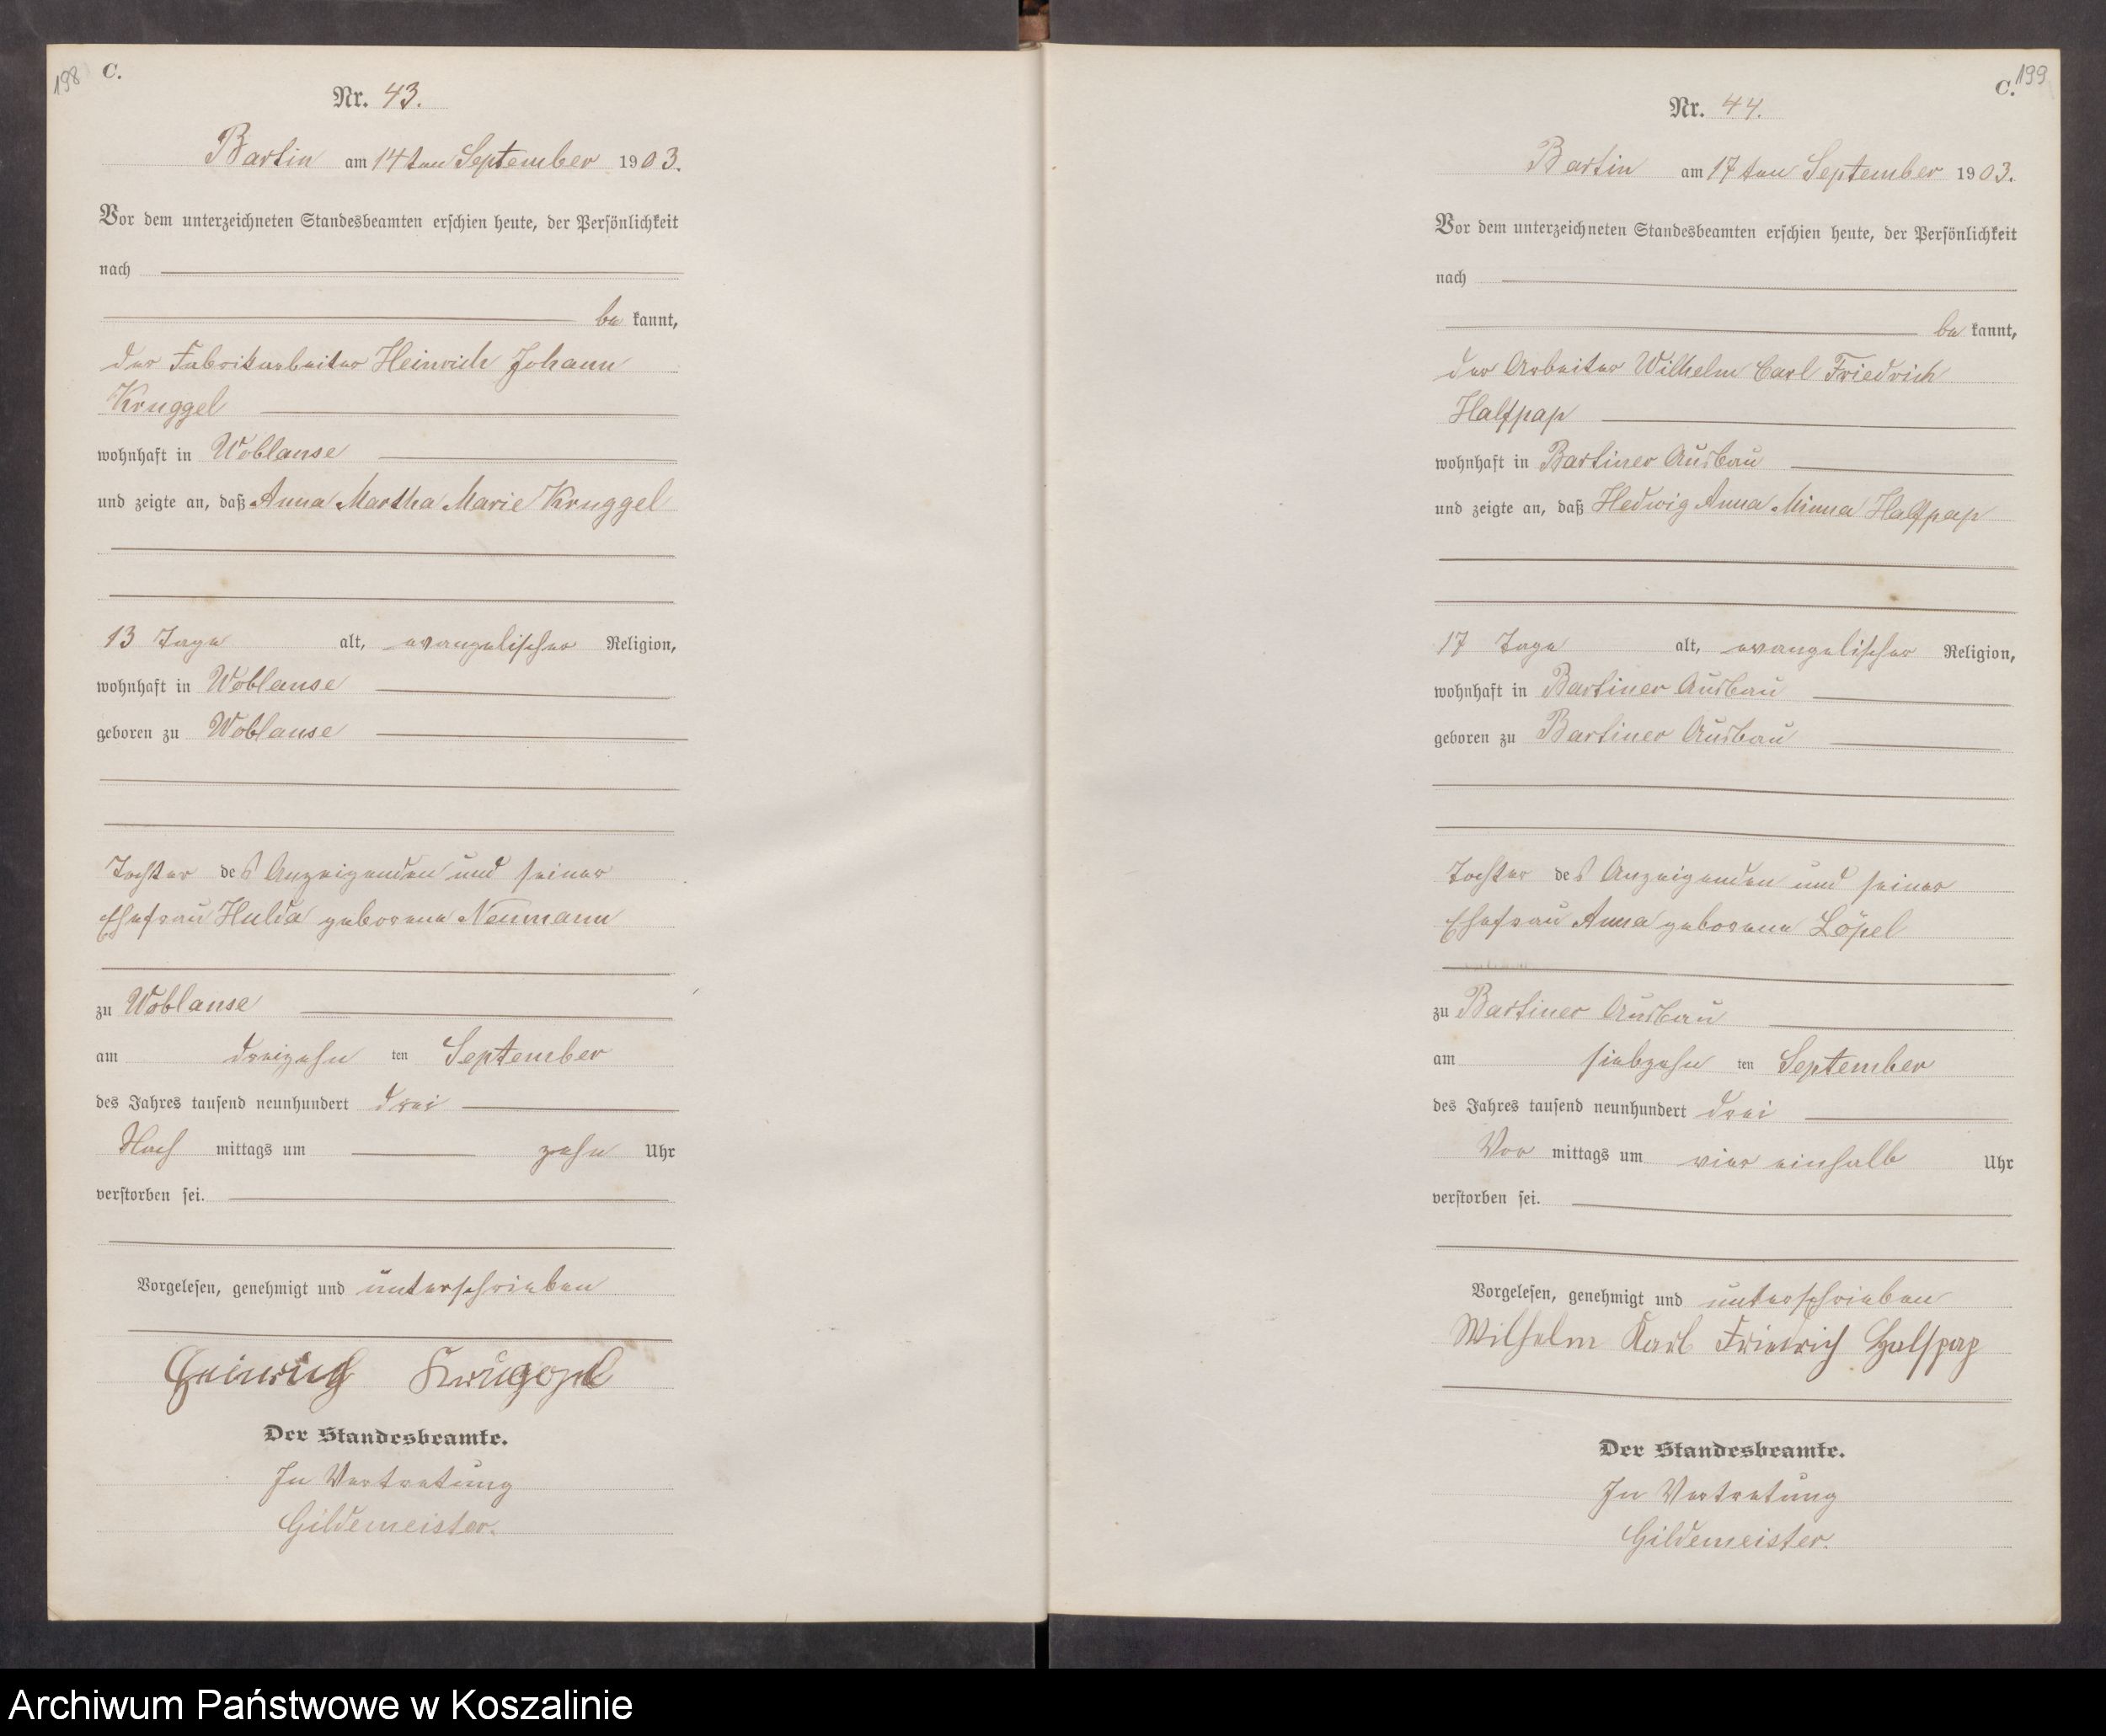 198
C.
Nr. 43.
Bartin am 14ten September 1903.
Vor dem unterzeichneten Standesbeamten erschien heute, der Persönlichkeit
nach
be kannt,
der Fabrikarbeiter Heinrich Johann
Kruggel
wohnhaft in Woblanse
und zeigte an, daß Anna Martha Marie Kruggel
13 Tage alt, evangelischer Religion,
wohnhaft in Woblanse
geboren zu Woblanse
Tochter des Anzeigenden und seiner
Ehefrau Hulda geborene Neumann
zu Woblanse
am dreizehn ten September
des Jahres tausend neunhundert drei
Nach mittags um zehn Uhr
verstorben sei.
Vorgelesen, genehmigt und unterschrieben
Heinrich Kruggel
Der Standesbeamte.
In Vertretung
Gildemeister.
199
C.
Nr. 44.
Bartin am 17ten September 1903.
Vor dem unterzeichneten Standesbeamten erschien heute, der Persönlichkeit
nach
be kannt,
der Arbeiter Wilhelm Carl Friedrich
Halfpap
wohnhaft in Bartiner Ausbau
und zeigte an, daß Hedwig Anna Minna Halfpap
17 Tage alt, evangelischer Religion,
wohnhaft in Bartiner Ausbau
geboren zu Bartiner Ausbau
Tochter des Anzeigenden und seiner
Ehefrau Anna geborene Löpel
zu Bartiner Ausbau
am siebzehn ten September
des Jahres tausend neunhundert drei
Vor mittags um vier einhalb Uhr
verstorben sei.
Vorgelesen, genehmigt und unterschrieben
Wilhelm Karl Friedrich Halfpap
Der Standesbeamte.
In Vertretung
Gildemeister.
Archiwum Państwowe w Koszalinie